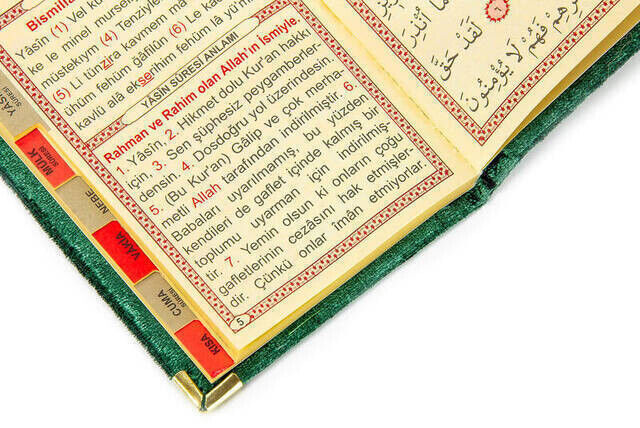 Bismilla
Yâsîn (1) Vel ku
ke le minel mursel
müstekıym (4) Tenziyle
(5) Li tünzira kavmem mâ
ühüm fehüm ğâfilûn (6) Le ka
kavlü alâ ekserihim fehüm lâ yü'mi
YÂSÎN SÛRESİ ANLAMI
Rahman ve Rahim olan Allah'ın İsmiyle.
1. Yâsîn, 2. Hikmet dolu Kur'an hakkı
için, 3. Sen şüphesiz peygamberler-
densin. 4. Dosdoğru yol üzerindesin.
5. (Bu Kur'an) Gâlip ve çok merha-
metli Allah tarafından indirilmiştir. 6.
Babaları uyarılmamış, bu yüzden
kendileri de gaflet içinde kalmış bir
toplumu uyarman için indirilmiş-
tir. 7. Yemin olsun ki onların çoğu
gafletlerinin cezasını hak etmişler-
dir. Çünkü onlar îmân etmiyorlar.
5
لَقَدْ حَقَّ
فَهُمْ لَا يُؤْمِنُونَ
YÂSÎN
SÛRESİ
MÜLK
SÛRESİ
NEBE
VÂKIA
CUMA
SÛRESİ
KISA